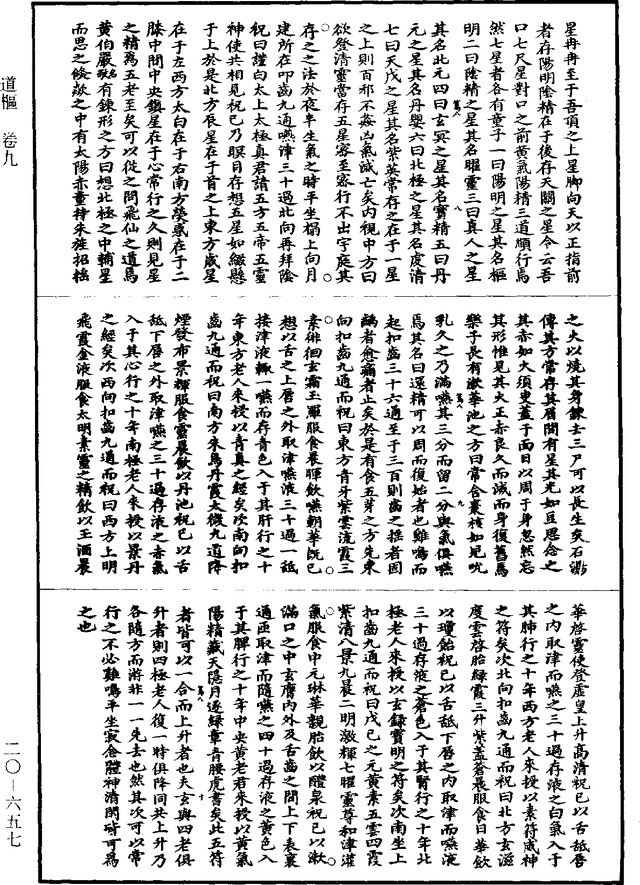 道樞 卷九
二〇-六五七
星冉冉至于吾頂之上星脚向天以正指前
者存陽明陰精在于後存天關之星令去吾
口七尺星對口之前黃氣陽精三道順行焉
然七星者各有童子一曰陽明之星其名樞
明二曰陰精之星其名躍靈三曰真人之星
其名北元四曰玄冥之星其名寶精五曰丹
元之星其名丹嬰六曰北極之星其名虔清
七曰天戊之星其名紫英常存之在于一星
之上則百邪不奸凶氣滅亡矣內視中方曰
欲登清靈當存五星密至密行不出宇庭其
存之之法於夜半生氣之時平坐榻上向月
建所在叩齒九通嚥津三十過北向再拜陰
祝曰謹白太上太極真君請五方五帝五靈
神使共相見祝已乃瞑目存想五星如綴懸
于上於是北方辰星在于首之上東方歲星
在于左西方太白在于右南方熒惑在于二
膝中間中央鎮星在于心常行之久則見星
之精爲五老至矣可以從之問飛仙之道焉
黃伯嚴有鍊形之方曰想北極之中輔星
而思之倏歘之中有太陽赤童持朱旌招搖
之火以燒其身鍊士三尸可以長生矣石
傳其方常存其眉間有星其光如豆思念之
其赤如火須臾蓋于面目以周于身忽然忘
其形惟見其火正赤良久而滅而身復舊焉
樂子長有漱華池之方曰常含棗核如兒吮
乳久之乃滿嚥其三分而留二分與氣俱嚥
焉其名曰還精可以周而復始者也雞鳴而
起扣齒三十六通至于三百則齒之搖者固
齲者愈齵者止矣於是有食五芽之方先東
向扣齒九通而祝曰東方青牙紫雲流霞三
素徘徊玄霜玉羅服食晨暉飲嚥朝華旣已
想以舌之上唇之外取津嚥液三十過一舐
接津液輒一嚥而存青色入于其肝行之十
年東方老人來授以青真之經矣次南向扣
齒九通而祝曰南方朱鳥丹霞太微九道降
煙發布景輝服食靈晨飲以丹池祝已以舌
舐下唇之外取津嚥之三十過存液之赤氣
入于其心行之十年南極老人來授以景丹
之經矣次西向扣齒九通而祝曰西方上明
飛霞金液服食太明素靈之精飲以玉酒晨
華啓靈使登虛皇上升高清祝已以舌舐唇
之內取津而嚥之三十過存液之白氣入于
其肺行之十年西方老人來授以素符威神
之符矣次北向扣齒九通而祝曰北方玄滋
度雲啓胎綠霞三升紫蓋蒼晨服食日華飲
以瓊飴祝已以舌舐下唇之內取津而嚥液
三十過存液之蒼色入于其腎行之十年北
極老人來授以玄錄寶明之符矣次南坐上
扣齒九通而祝曰戊己之元黃素五雲四霞
紫清八景九晨二明激輝七曜靈尊和津灌
氣服食中元琳華親胎飲以醴泉祝已以漱
滿口之中玄膺內外及舌齒之間上下表裏
通匝取津而隨嚥之四十過存液之黃色入
于其脾行之十年中央黃老君來授以黃氣
陽精藏天隱月遂綠章青腰虎書矣此五符
者皆可以一合而上升者也夫玄與四老俱
升者則四極老人復一時俱降同共上升乃
各隨方而游非一一先去也然其次可以常
行之不必雞鳴平坐寂念體神清閑皆可爲
之也